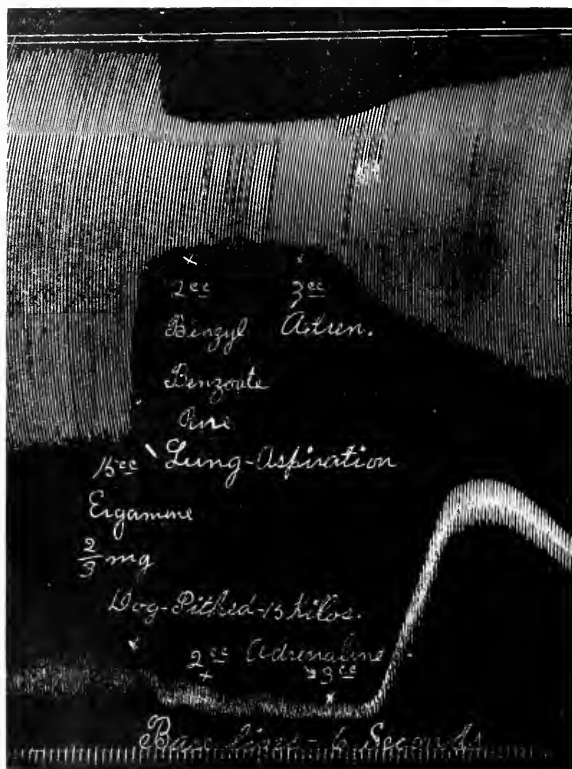 2cc 3cc
Benzyl Adren.
Benzoate
Pure
15cc Lung-Aspiration
Ergamine
2/3 mg
Dog-Pithed-15 kilos.
2cc Adrenaline
3cc
Base lines - 6 Seconds